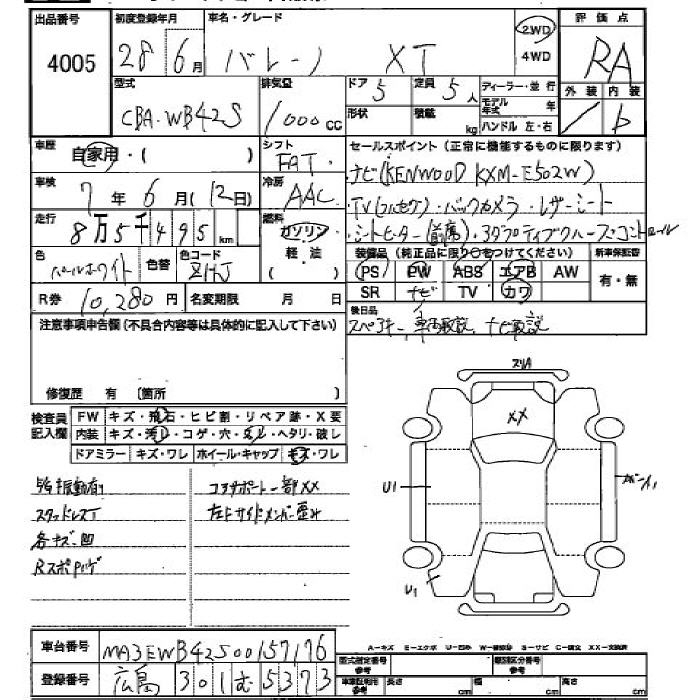 出品番号
4005
初度登録年月
28年 6月
車名・グレード
バレーノ XT
2WD
4WD
評価点
RA
外装 内装
型式
CBA-WB42S
排気量
1000cc
ドア
5
定員
5人
形状
積載
kg
ディーラー・並行
モデル年式 年
ハンドル 左・右
車歴
自家用・( )
シフト
FAT
セールスポイント(正常に機能するものに限ります)
ナビ(KENWOOD KXM-E502W)
・TV(フルセグ)・バックカメラ・レザーシート
・シートヒーター(前席)・アダプティブクルーズコントロール
車検
7年 6月(12日)
冷房
AAC
走行
8万5千495km
燃料
ガソリン
軽・油
( )
色
パールホワイト
色替
色コード
ZHJ
装備品(純正品に限り○をつけてください)
新車保証書
PS PW ABS エアB AW
SR ナビ TV カワ
有・無
R券
10,280円
名変期限 月 日
後日品
スペアキー 車両取説 ナビ取説
注意事項申告欄(不具合内容等は具体的に記入して下さい)
修復歴 有 〔箇所 〕
検査員記入欄
FW キズ・飛石・ヒビ割・リペア跡・X要
内装 キズ・汚レ・コゲ・穴・スレ・ヘタリ・破レ
ドアミラー キズ・ワレ ホイール・キャップ キズ・ワレ
スタッドレスT
各キズ・凹
コアサポート一部XX
左Fサイドメンバー歪み
スリA
XX
U1
U1
A-キズ E-エクボ U-凹み W-補修跡 S-サビ C-腐食 XX-交換済
車台番号
MA3EWB42S00157176
登録番号
広島 301 む 5373
型式指定番号
参考
類別区分番号
参考
車庫証明用
参考
長さ cm
幅 cm
高さ cm